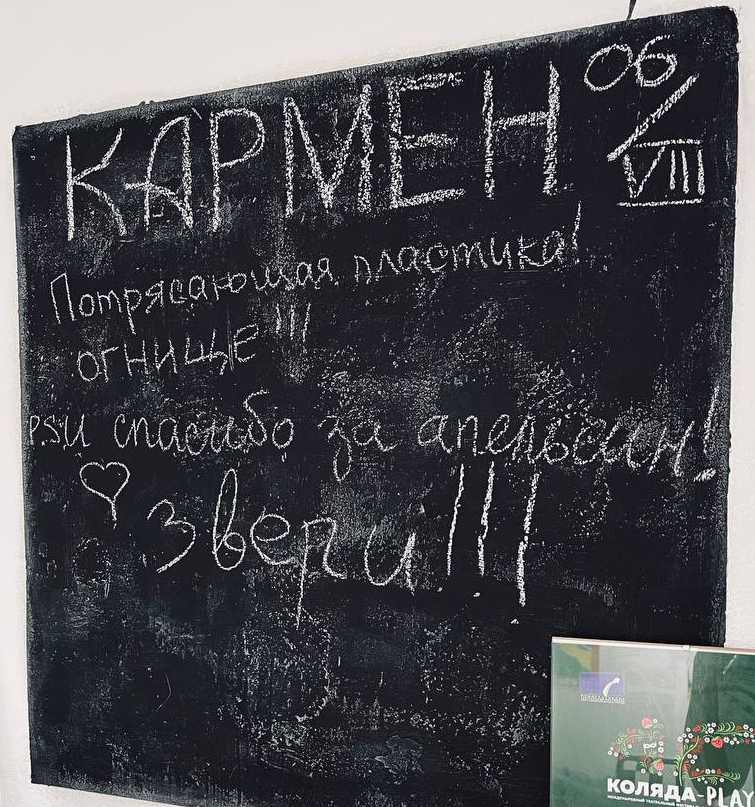 КАРМЕН 06/VIII
Потрясающая пластика!
ОГНИЩЕ!!!
PSИ спасибо за апельсин!
Звери!!!
КОЛЯДА-PLAY